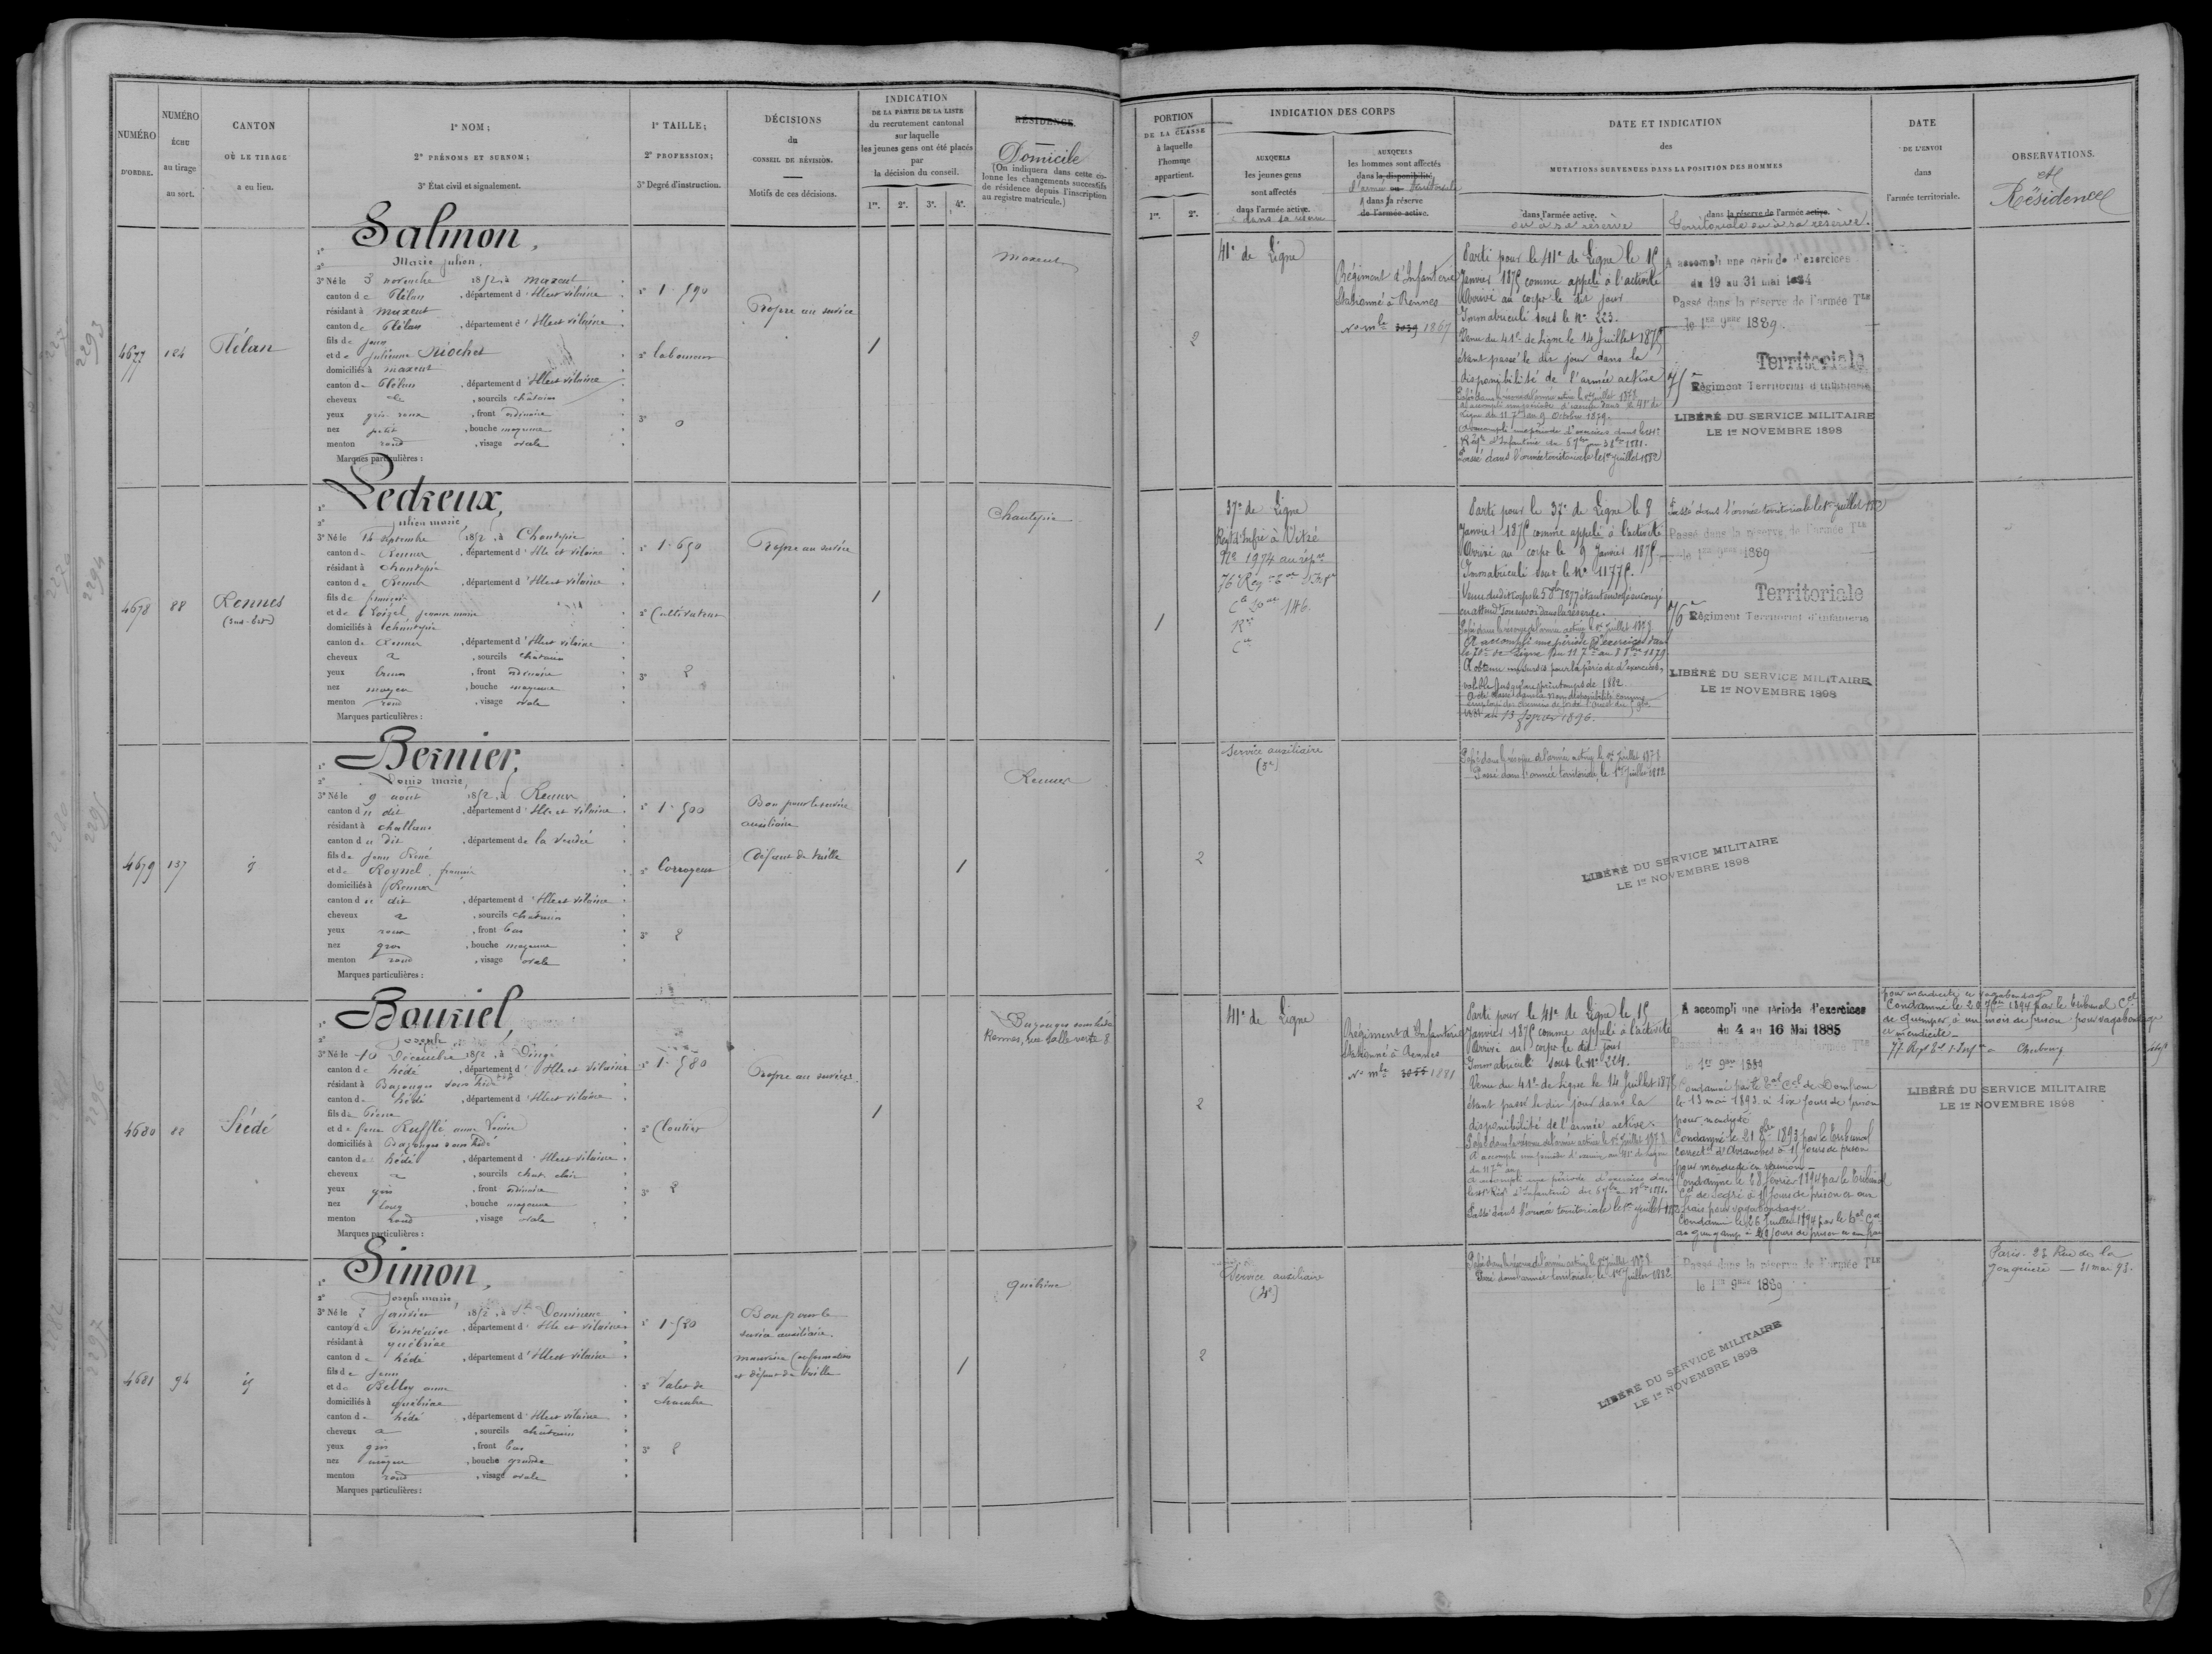 NUMÉRO
D'ORDRE.
NUMÉRO
ÉCHU
au tirage
au sort.
CANTON
OÙ LE TIRAGE
a eu lieu.
1º NOM;
2º PRÉNOMS ET SURNOM;
3º État civil et signalement.
1º TAILLE;
2º PROFESSION;
3º Degré d'instruction.
DÉCISIONS
du
CONSEIL DE RÉVISION.
Motifs de ces décisions.
INDICATION
DE LA PARTIE DE LA LISTE
du recrutement cantonal
sur laquelle
les jeunes gens ont été placés
par
la décision du conseil.
1re. 2e. 3e. 4e.
RÉSIDENCE.
Domicile
(On indiquera dans cette co-
lonne les changements successifs
de résidence depuis l'inscription
au registre matricule.)
PORTION
DE LA CLASSE
à laquelle
l'homme
appartient.
1re. 2e.
INDICATION DES CORPS
AUXQUELS
les jeunes gens
sont affectés
dans l'armée active.
AUXQUELS
les hommes sont affectés
dans la disponibilité,
l'armée territoriale
dans la réserve
de l'armée active.
DATE ET INDICATION
des
MUTATIONS SURVENUES DANS LA POSITION DES HOMMES
dans l'armée active.
ou à sa réserve
dans la réserve de l'armée active.
territoriale ou à sa réserve.
DATE
DE L'ENVOI
dans
l'armée territoriale.
OBSERVATIONS.
et
Résidence
4677
124
Plélan
1º Salmon,
2º Marie Julien,
3º Né le 3 novembre 1852, à Maxent
canton de Plélan, département d'Ille et vilaine
résidant à Maxent
canton de Plélan, département d'Ille et vilaine
fils de Jean
et de Julienne Riochet
domiciliés à Maxent
canton de Plélan, département d'Ille et vilaine
cheveux, sourcils châtains
yeux gris roux, front ordinaire
nez petit, bouche moyenne
menton rond, visage ovale
Marques particulières :
1º 1.590
2º laboureur
3º 0
Propre au service
1
Maxent
2
41e de Ligne
Régiment d'Infanterie
Stationné à Rennes
No mle 1867
Parti pour le 41e de Ligne le 15
Janvier 1875 comme appelé à l'activité
Arrivé au corps le dit jour
Immatriculé sous le No 223.
Venu du 41e de Ligne le 14 Juillet 1875
étant passé le dit jour dans la
disponibilité de l'armée active
Passé dans la réserve de l'armée active le 1er Juillet 1878
Ligne du 11 7bre au 9 Octobre 1879.
A accompli une période d'exercices dans le 41e
Régt d'Infanterie du 5 7bre au 3 8bre 1881.
Passé dans l'armée territoriale le 1er Juillet 1882
A accompli une période d'exercices
du 19 au 31 mai 1884
Passé dans la réserve de l'armée Tle
le 1er 9bre 1889
Territoriale
75e Régiment Territorial d'Infanterie
LIBÉRÉ DU SERVICE MILITAIRE
LE 1er NOVEMBRE 1898
4678
88
Rennes
(Sud-Est)
1º Ledreux,
2º Julien marie,
3º Né le 14 septembre 1852, à Chantepie
canton de Rennes, département d'Ille et vilaine
résidant à Chantepie
canton de Rennes, département d'Ille et vilaine
fils de françois
et de Loizel jeanne marie
domiciliés à Chantepie
canton de Rennes, département d'Ille et vilaine
cheveux, sourcils châtains
yeux bruns, front ordinaire
nez moyen, bouche moyenne
menton rond, visage ovale
Marques particulières :
1º 1.650
2º Cultivateur
3º 2
Propre au service
1
Chantepie
1
37e de Ligne
Régt d'Infie à Vitré
No 1974 au rép
Parti pour le 37e de Ligne le 8
Janvier 1875 comme appelé à l'activité
Arrivé au corps le 9 Janvier 1875
Immatriculé sous le No 11775.
en attendt son renvoi dans la réserve.
Passé dans la réserve de l'armée active le 1er Juillet 1878
A accompli une période d'exercices dans
le 70e de Ligne du 11 7bre au 8 8bre 1879
A obtenu un sursis pour la période d'exercices,
valable jusqu'au printemps de 1882
A été classé dans la non disponibilité comme
employé des chemins de fer de l'Ouest du
1881 au 13 février 1896.
Passé dans l'armée territoriale le 1er Juillet 1882
Passé dans la réserve de l'armée Tle
le 1er 9bre 1889
Territoriale
76e Régiment Territorial d'Infanterie
LIBÉRÉ DU SERVICE MILITAIRE
LE 1er NOVEMBRE 1898
4679
137
1º Bernier,
2º Louis marie,
3º Né le 9 août 1852, à Rennes
canton du dit, département d'Ille et vilaine
résidant à Challans
canton du dit, département de la Vendée
fils de Jean René
et de Roynel
domiciliés à Rennes
canton du dit, département d'Ille et vilaine
cheveux, sourcils châtains
yeux roux, front bas
nez gros, bouche moyenne
menton rond, visage ovale
Marques particulières :
1º 1.500
2º Corroyeur
3º 2
Bon pour le service
auxiliaire
Défaut de taille
1
Rennes
2
Service auxiliaire
Passé dans la réserve de l'armée active le 1er Juillet 1878
Passé dans l'armée territoriale, le 1er Juillet 1882
LIBÉRÉ DU SERVICE MILITAIRE
LE 1er NOVEMBRE 1898
4680
22
Hédé
1º Bouriel,
2º Joseph
3º Né le 10 Décembre 1852, à Dingé
canton de hédé, département d'Ille et vilaine
résidant à Bazouges sous hédé
canton de hédé, département d'Ille et vilaine
fils de Pierre
et de feue Rufflé anne
domiciliés à Bazouges sous hédé
canton de hédé, département d'Ille et vilaine
cheveux, sourcils chat. clair
yeux gris, front ordinaire
nez long, bouche moyenne
menton rond, visage ovale
Marques particulières :
1º 1.580
2º Cloutier
3º 2
Propre au service
1
Bazouges sous hédé
Rennes, rue Salle verte 8
2
41e de Ligne
Régiment d'Infanterie
Stationné à Rennes
No mle 1881
Parti pour le 41e de Ligne le 15
Janvier 1875 comme appelé à l'activité
Arrivé au corps le dit jour
Immatriculé sous le No 224.
Venu du 41e de Ligne le 14 Juillet 1875
étant passé le dit jour dans la
disponibilité de l'armée active.
Passé dans la réserve de l'armée active le 1er Juillet 1878
A accompli une période d'exercices dans
Passé dans l'armée territoriale le 1er Juillet 1882
A accompli une période d'exercices
du 4 au 16 Mai 1885
1er 9bre 1889
Condamné par le Tal Cel de Domfront
le 13 mai 1893 à six jours de prison
pour mendicité
Condamné le 21 8bre 1893 par le tribunal
correctel d'Avranches à 15 jours de prison
pour mendicité en réunion
Condamné le 28 février 1894 par le tribunal
Cel de Segré à 15 jours de prison et aux
frais pour vagabondage.
Condamné le 26 Juillet 1894 par le tal Cel
de Guingamp à 20 jours de prison
pour mendicité et vagabondage
Condamné le 20 1894 par le tribunal Cel
de Quimper, à un mois de prison pour vagabondage
et mendicité
Cherbourg
LIBÉRÉ DU SERVICE MILITAIRE
LE 1er NOVEMBRE 1898
4681
94
1º Simon,
2º Joseph marie,
3º Né le 2 Janvier 1852, à St Domineuc
canton de Tinténiac, département d'Ille et vilaine
résidant à québriac
canton de hédé, département d'Ille et vilaine
fils de Jean
et de Bellay anne
domiciliés à québriac
canton de hédé, département d'Ille et vilaine
cheveux, sourcils châtains
yeux gris, front bas
nez moyen, bouche grande
menton rond, visage ovale
Marques particulières :
1º 1.520
2º Valet de
chambre
3º 2
Bon pour le
service auxiliaire.
mauvaise conformation
et défaut de taille
1
Québriac
2
Service auxiliaire
Passé dans la réserve de l'armée active le 1er Juillet 1878
Passé dans l'armée territoriale, le 1er Juillet 1882
Passé dans la réserve de l'armée Tle
le 1er 9bre 1889
LIBÉRÉ DU SERVICE MILITAIRE
LE 1er NOVEMBRE 1898
Paris. 27 Rue de la
31 mai 93.
2293
2294
2295
2296
2297